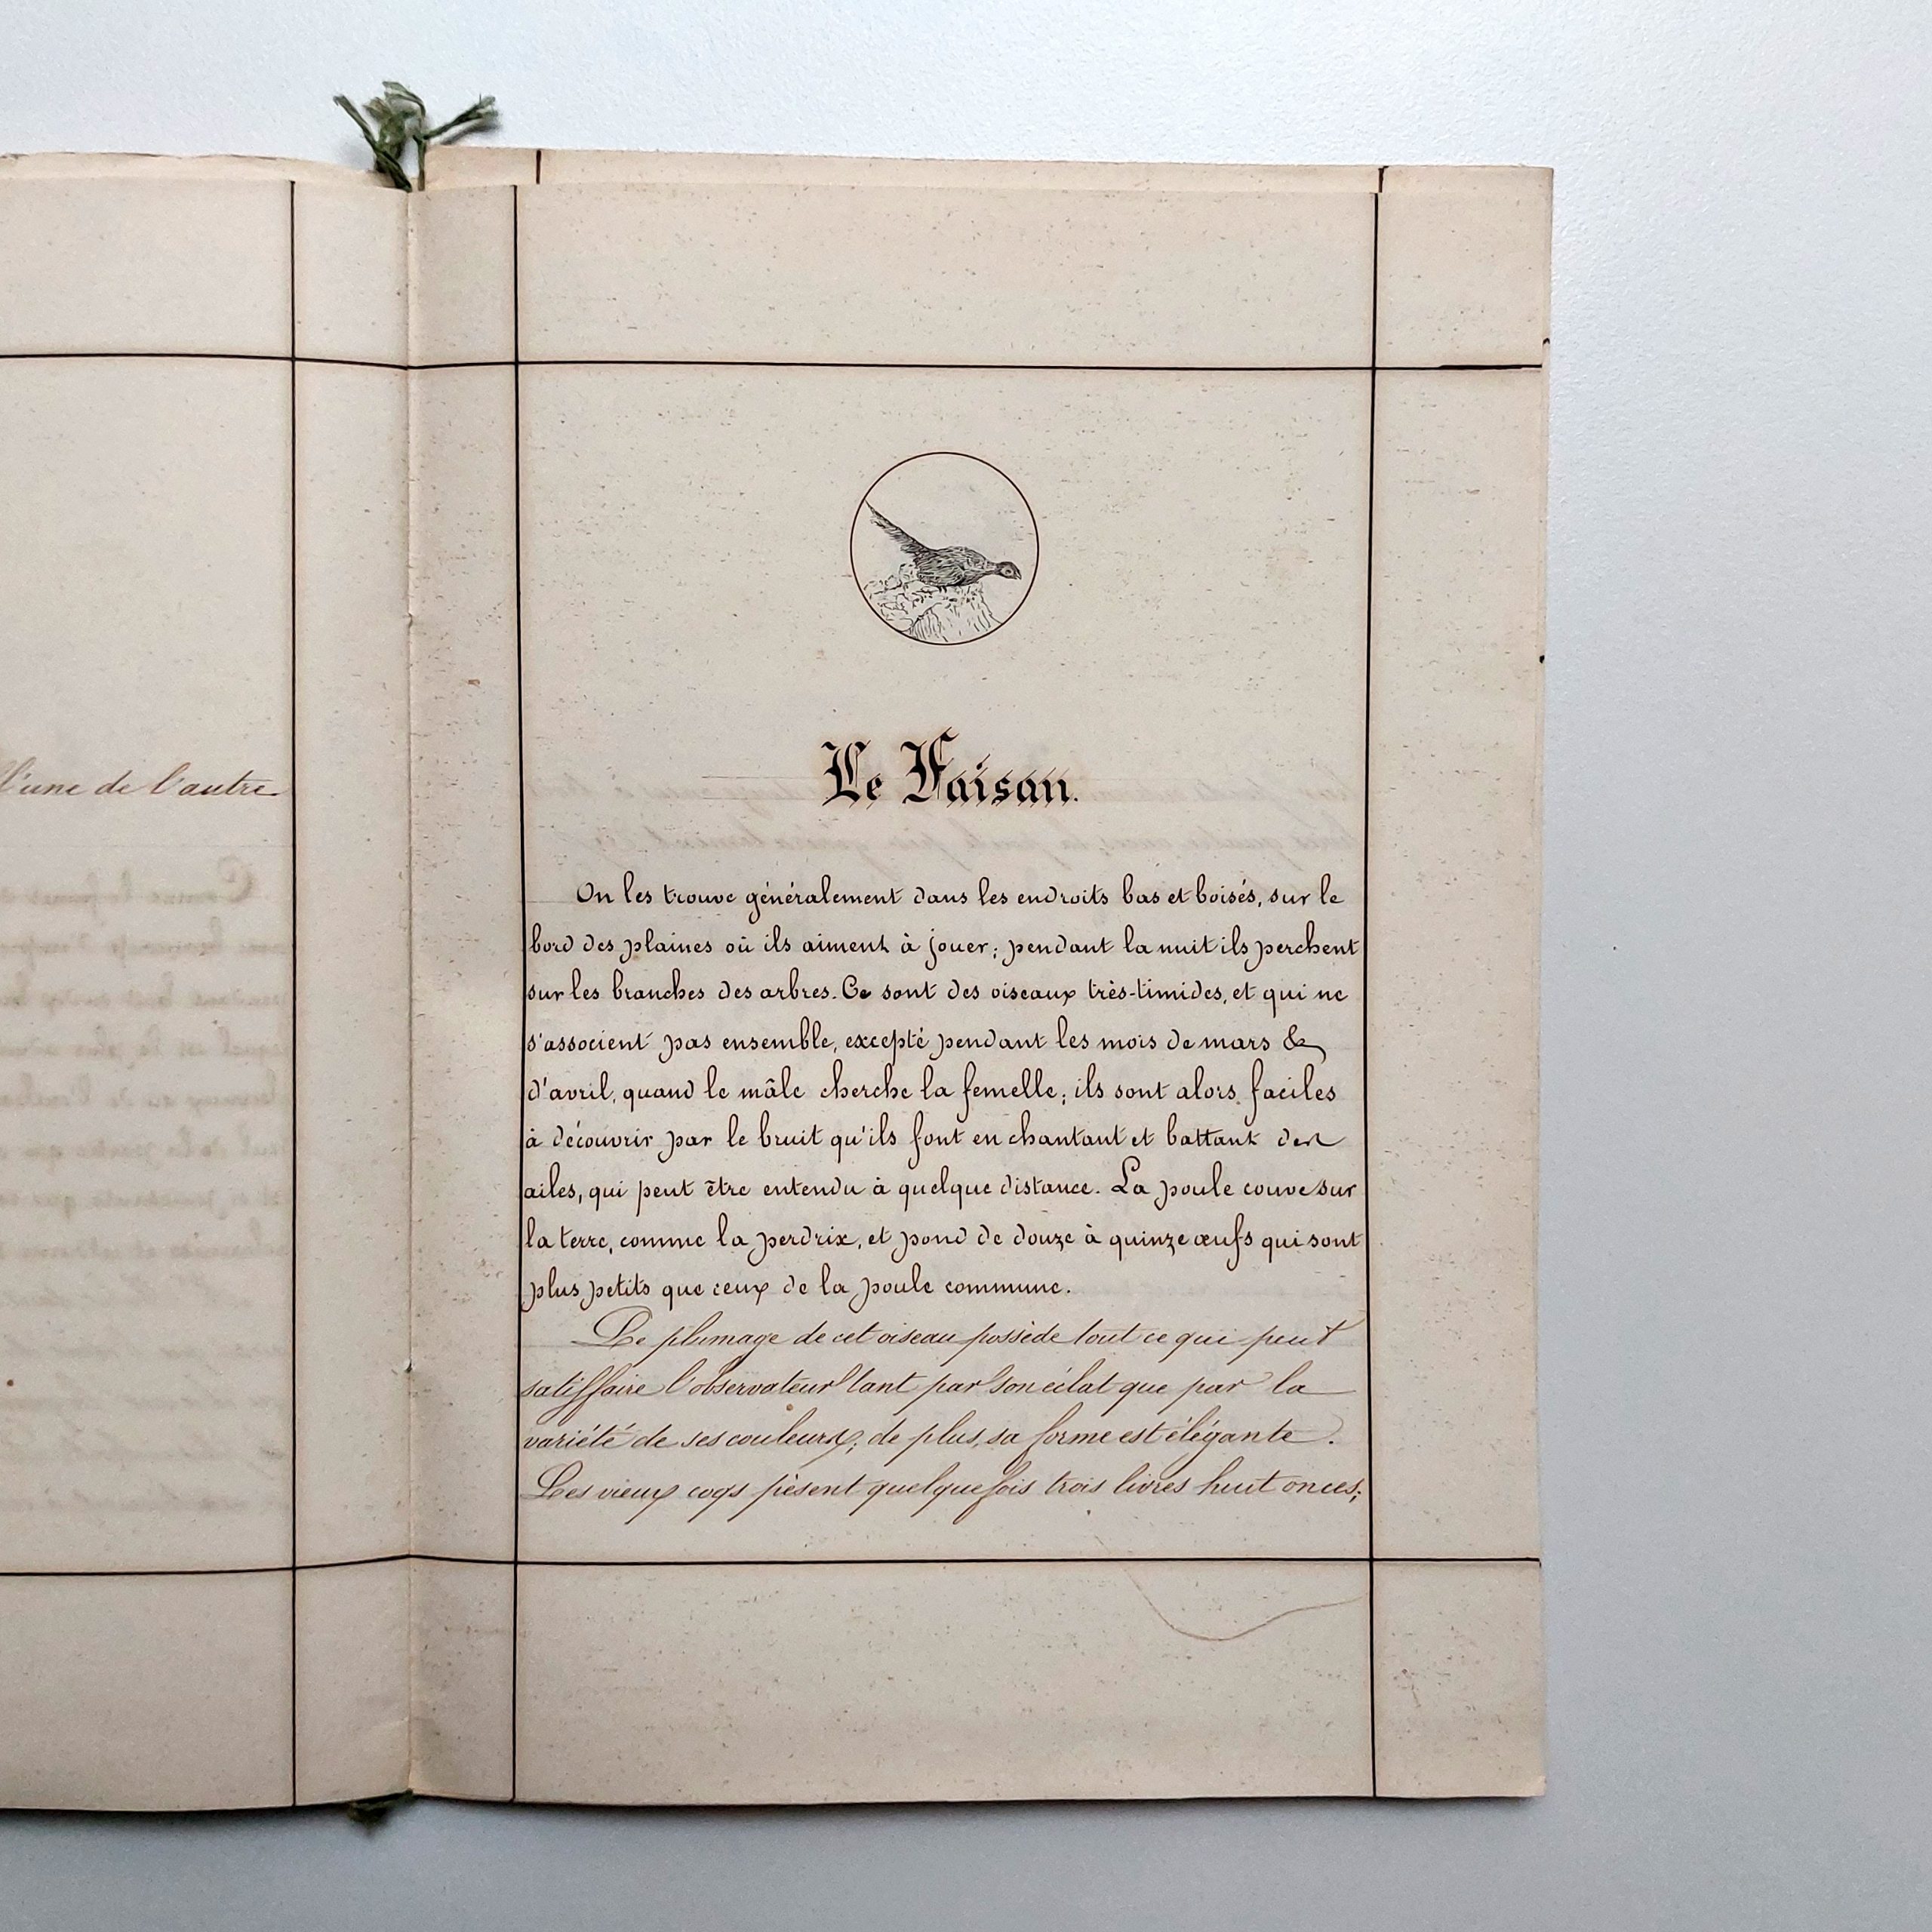 l'une de l'autre
Le Faisan.
On les trouve généralement dans les endroits bas et boisés, sur le
bord des plaines où ils aiment à jouer; pendant la nuit ils perchent
sur les branches des arbres. Ce sont des oiseaux très-timides, et qui ne
s'associent pas ensemble, excepté pendant les mois de mars &
d'avril, quand le mâle cherche la femelle; ils sont alors faciles
à découvrir par le bruit qu'ils font en chantant et battant des
ailes, qui peut être entendu à quelque distance. La poule couve sur
la terre, comme la perdrix, et pond de douze à quinze œufs qui sont
plus petits que ceux de la poule commune.
Le plumage de cet oiseau possède tout ce qui peut
satisfaire l'observateur tant par son éclat que par la
variété de ses couleurs; de plus, sa forme est élégante.
Les vieux coqs pèsent quelquefois trois livres huit onces;